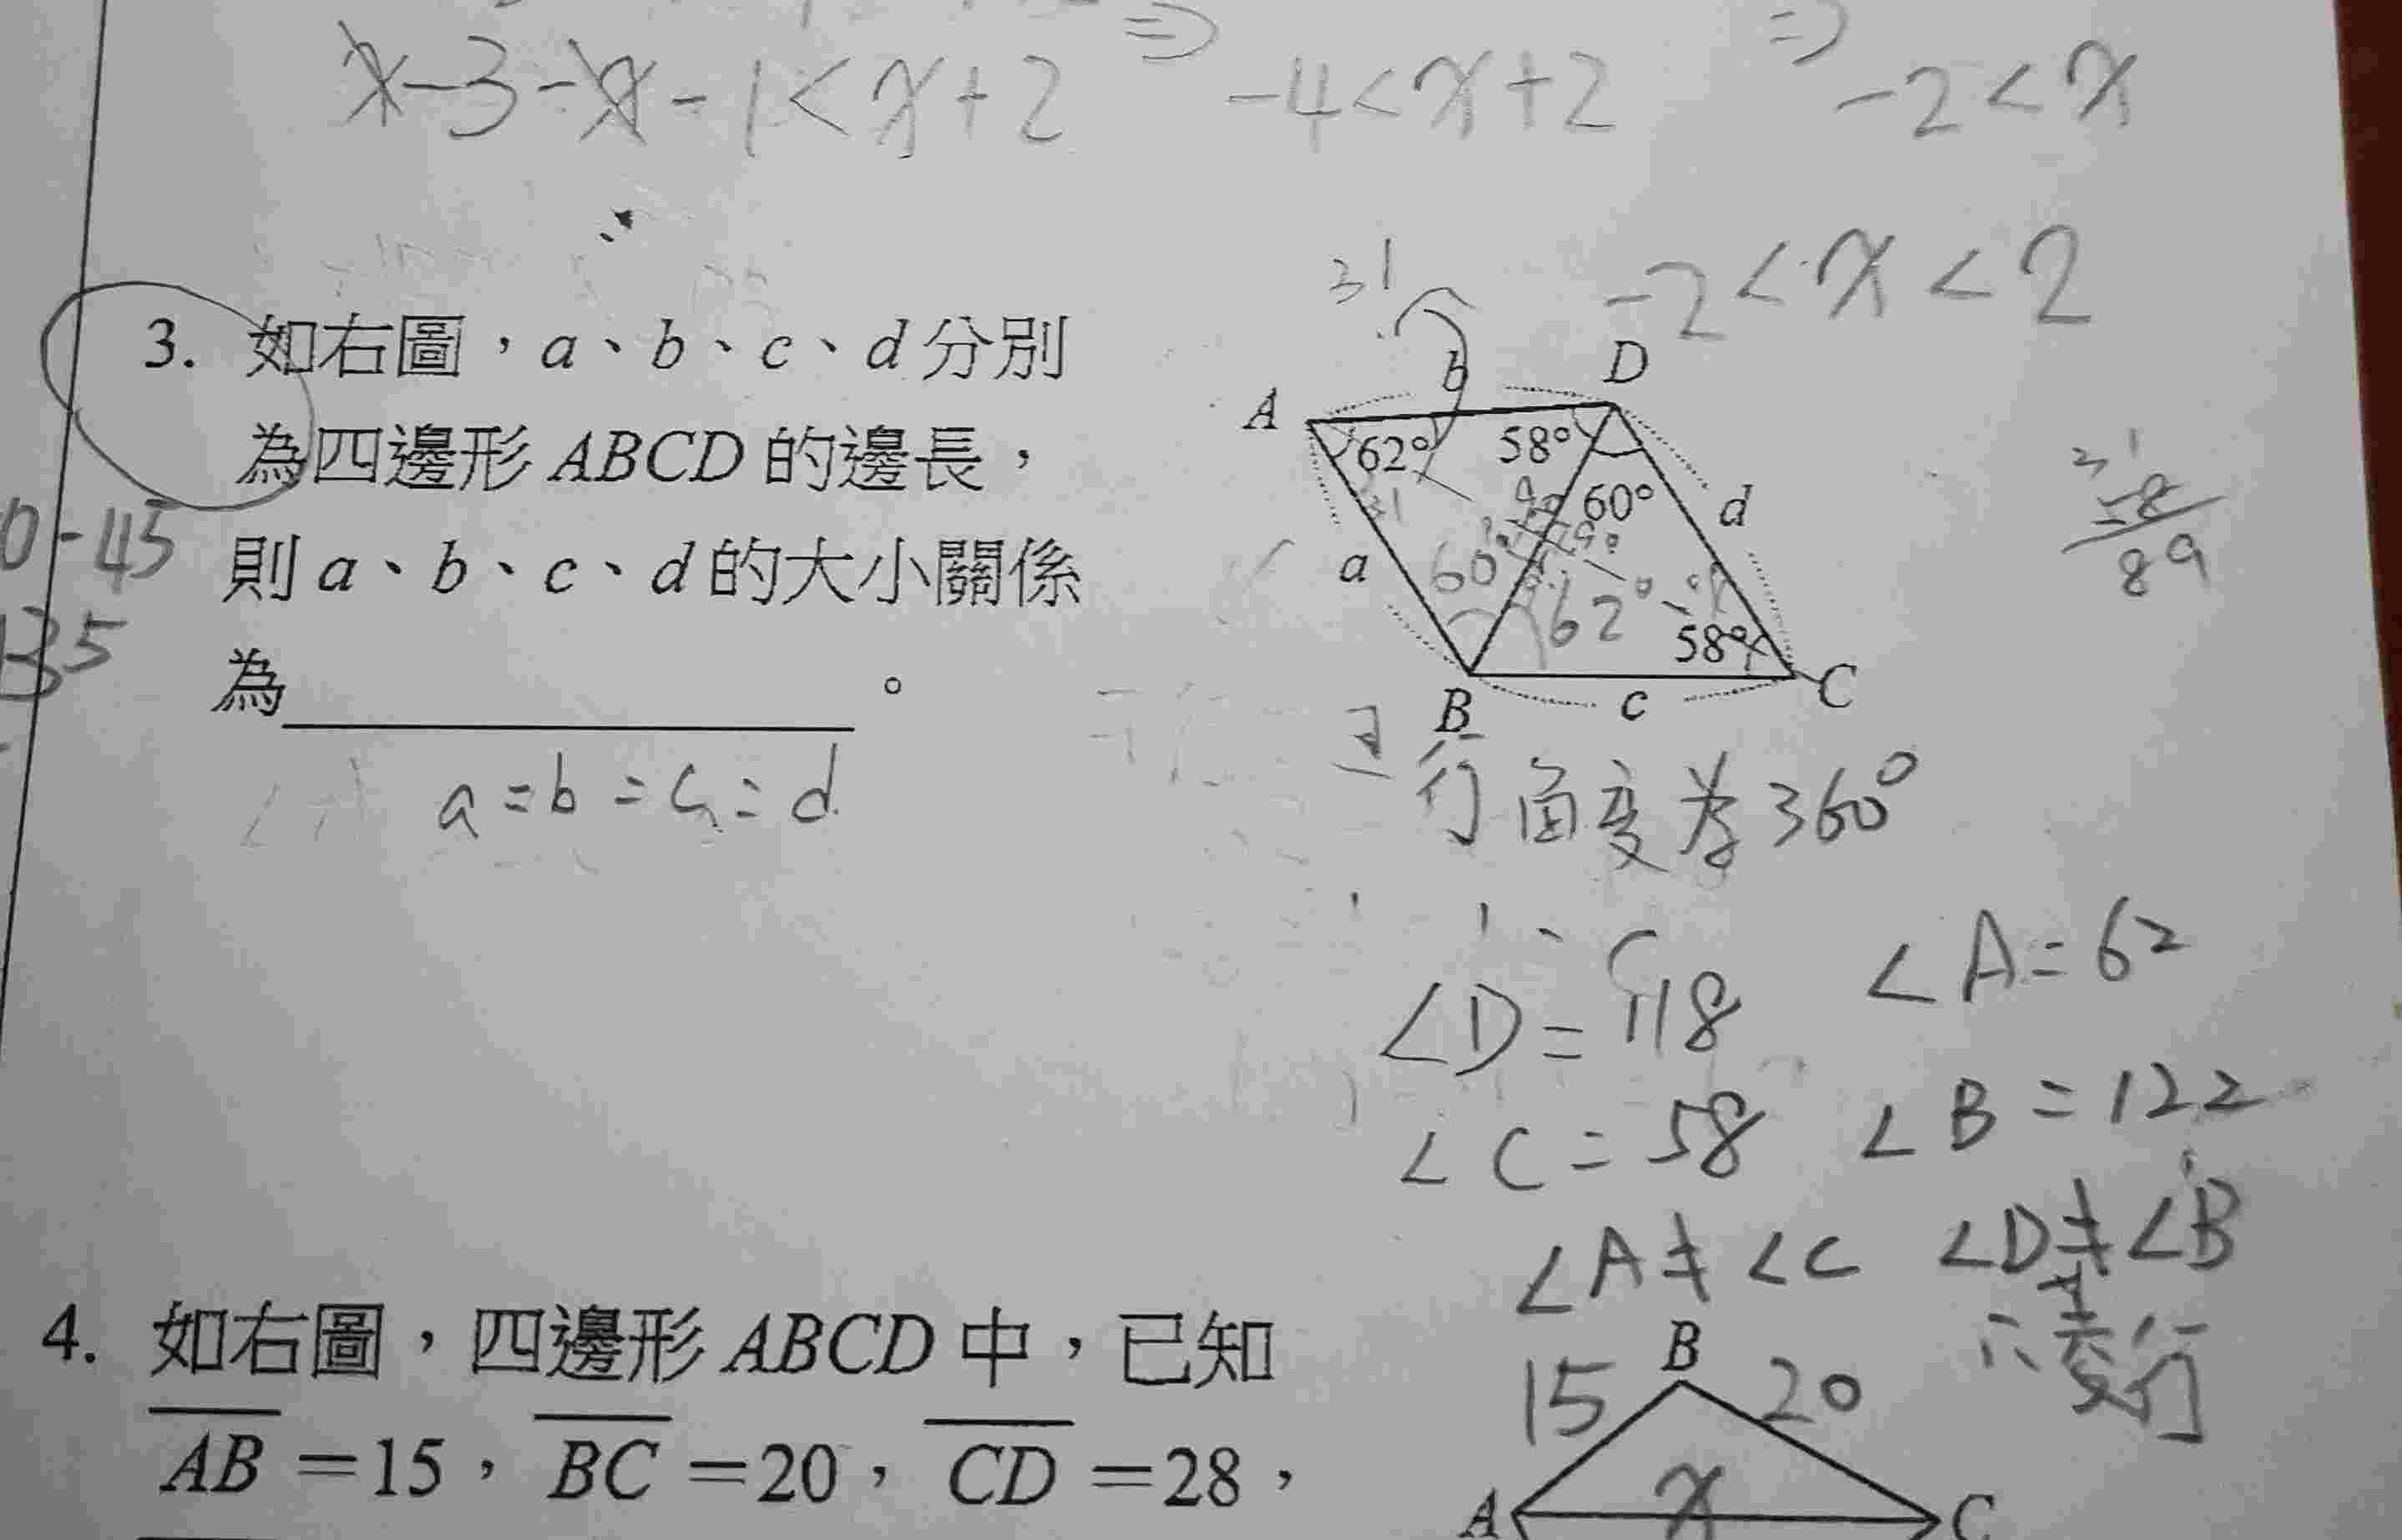 x-3-x-1<x+2 ⇒ -4<x+2 ⇒ -2<x
-2<x<2
3. 如右圖,a、b、c、d分別
為四邊形ABCD的邊長,
則a、b、c、d的大小關係
為 。
a=b=c=d
0-45
35
31
A
b
D
62°
58°
31
60°
d
a
60°
62°
58°
B
c
C
89
行角度為360°
∠D=118 ∠A=62
∠C=58 ∠B=122
∠A≠∠C ∠D≠∠B
4. 如右圖,四邊形ABCD中,已知
AB=15,BC=20,CD=28,
15
B
20
A
x
C